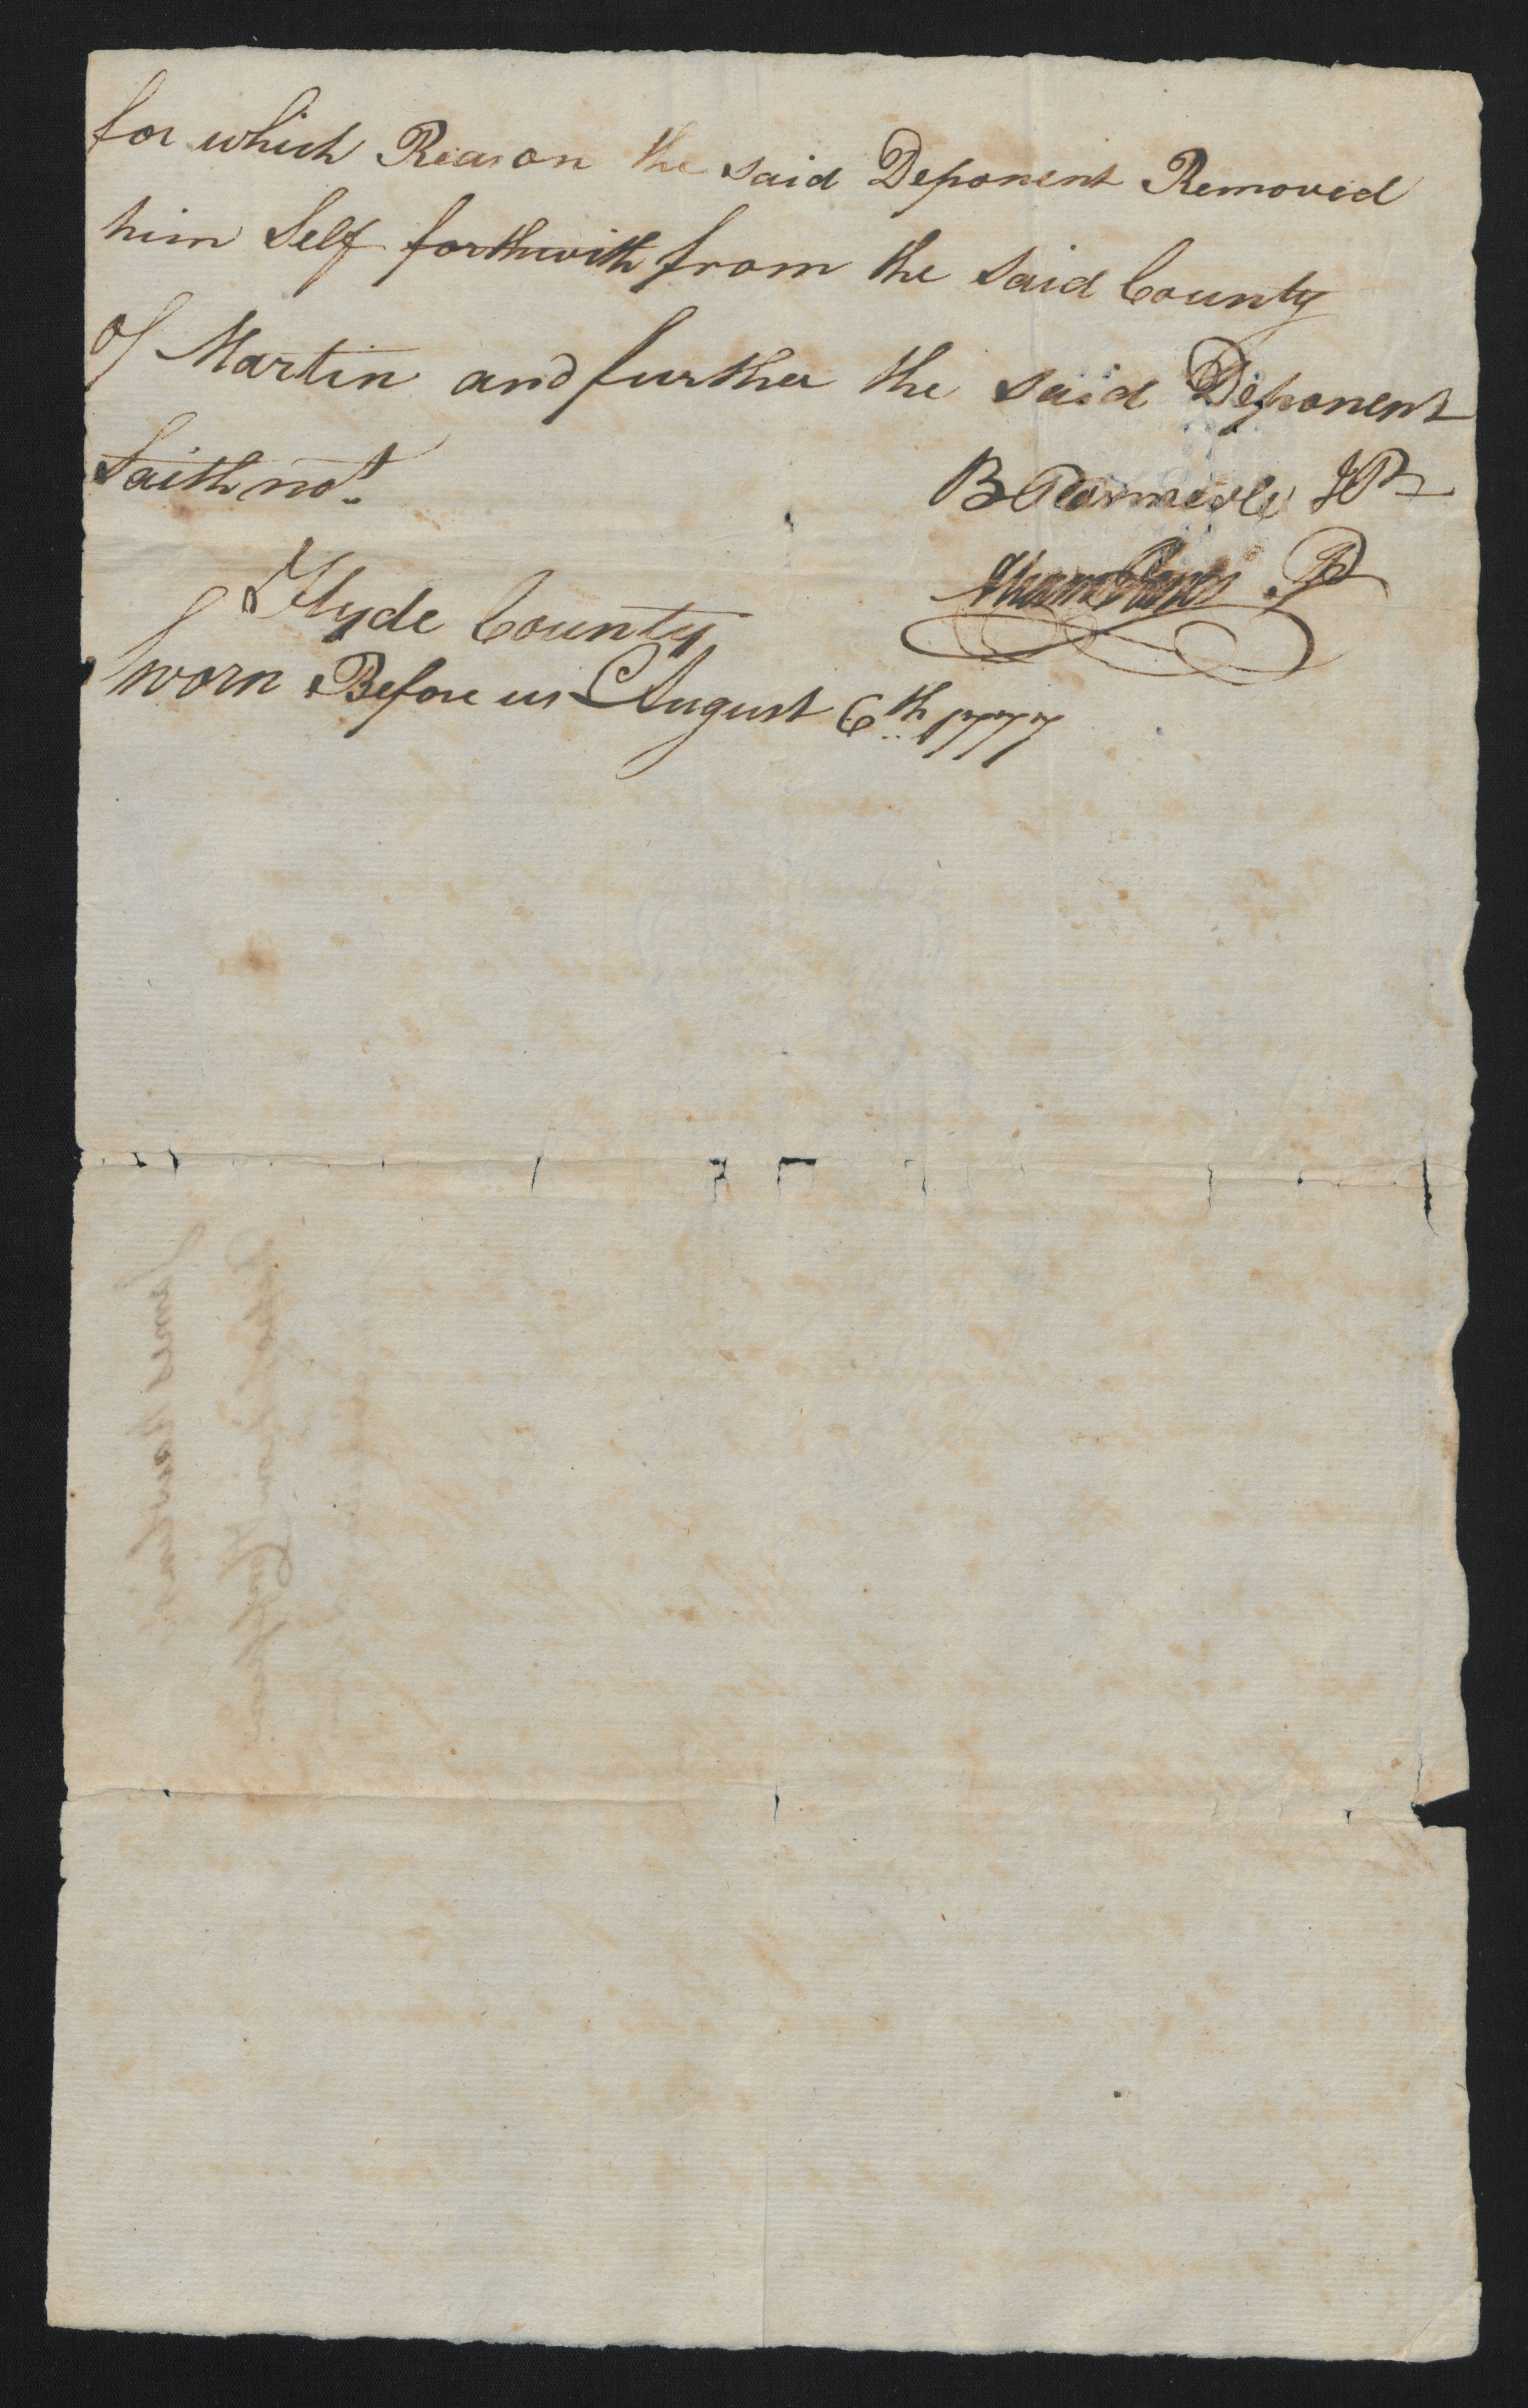 for which Reason the said Deponent Removed
him Self forthwith from the said County
of Martin and further the said Deponent
Saith not.
B Parmerle JP
Abraham Jones JP
Hyde County
Sworn Before us August 6th 1777
James Rawlins